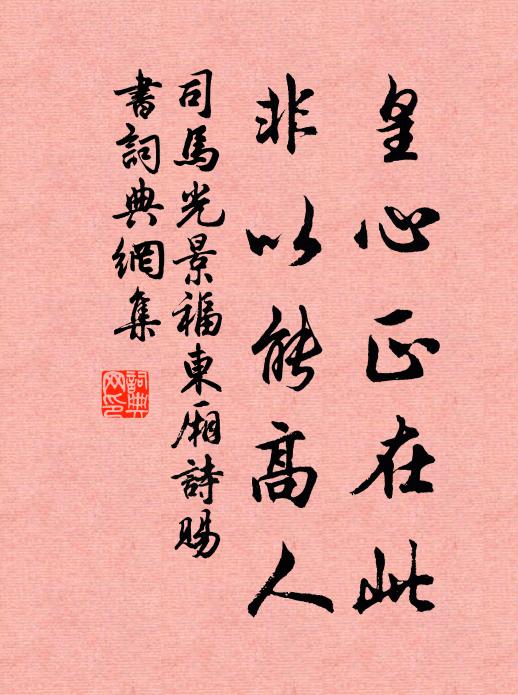 皇心正在此
非以能高人
司馬光景福東廂詩賜
書詞典網集
詞典
网印